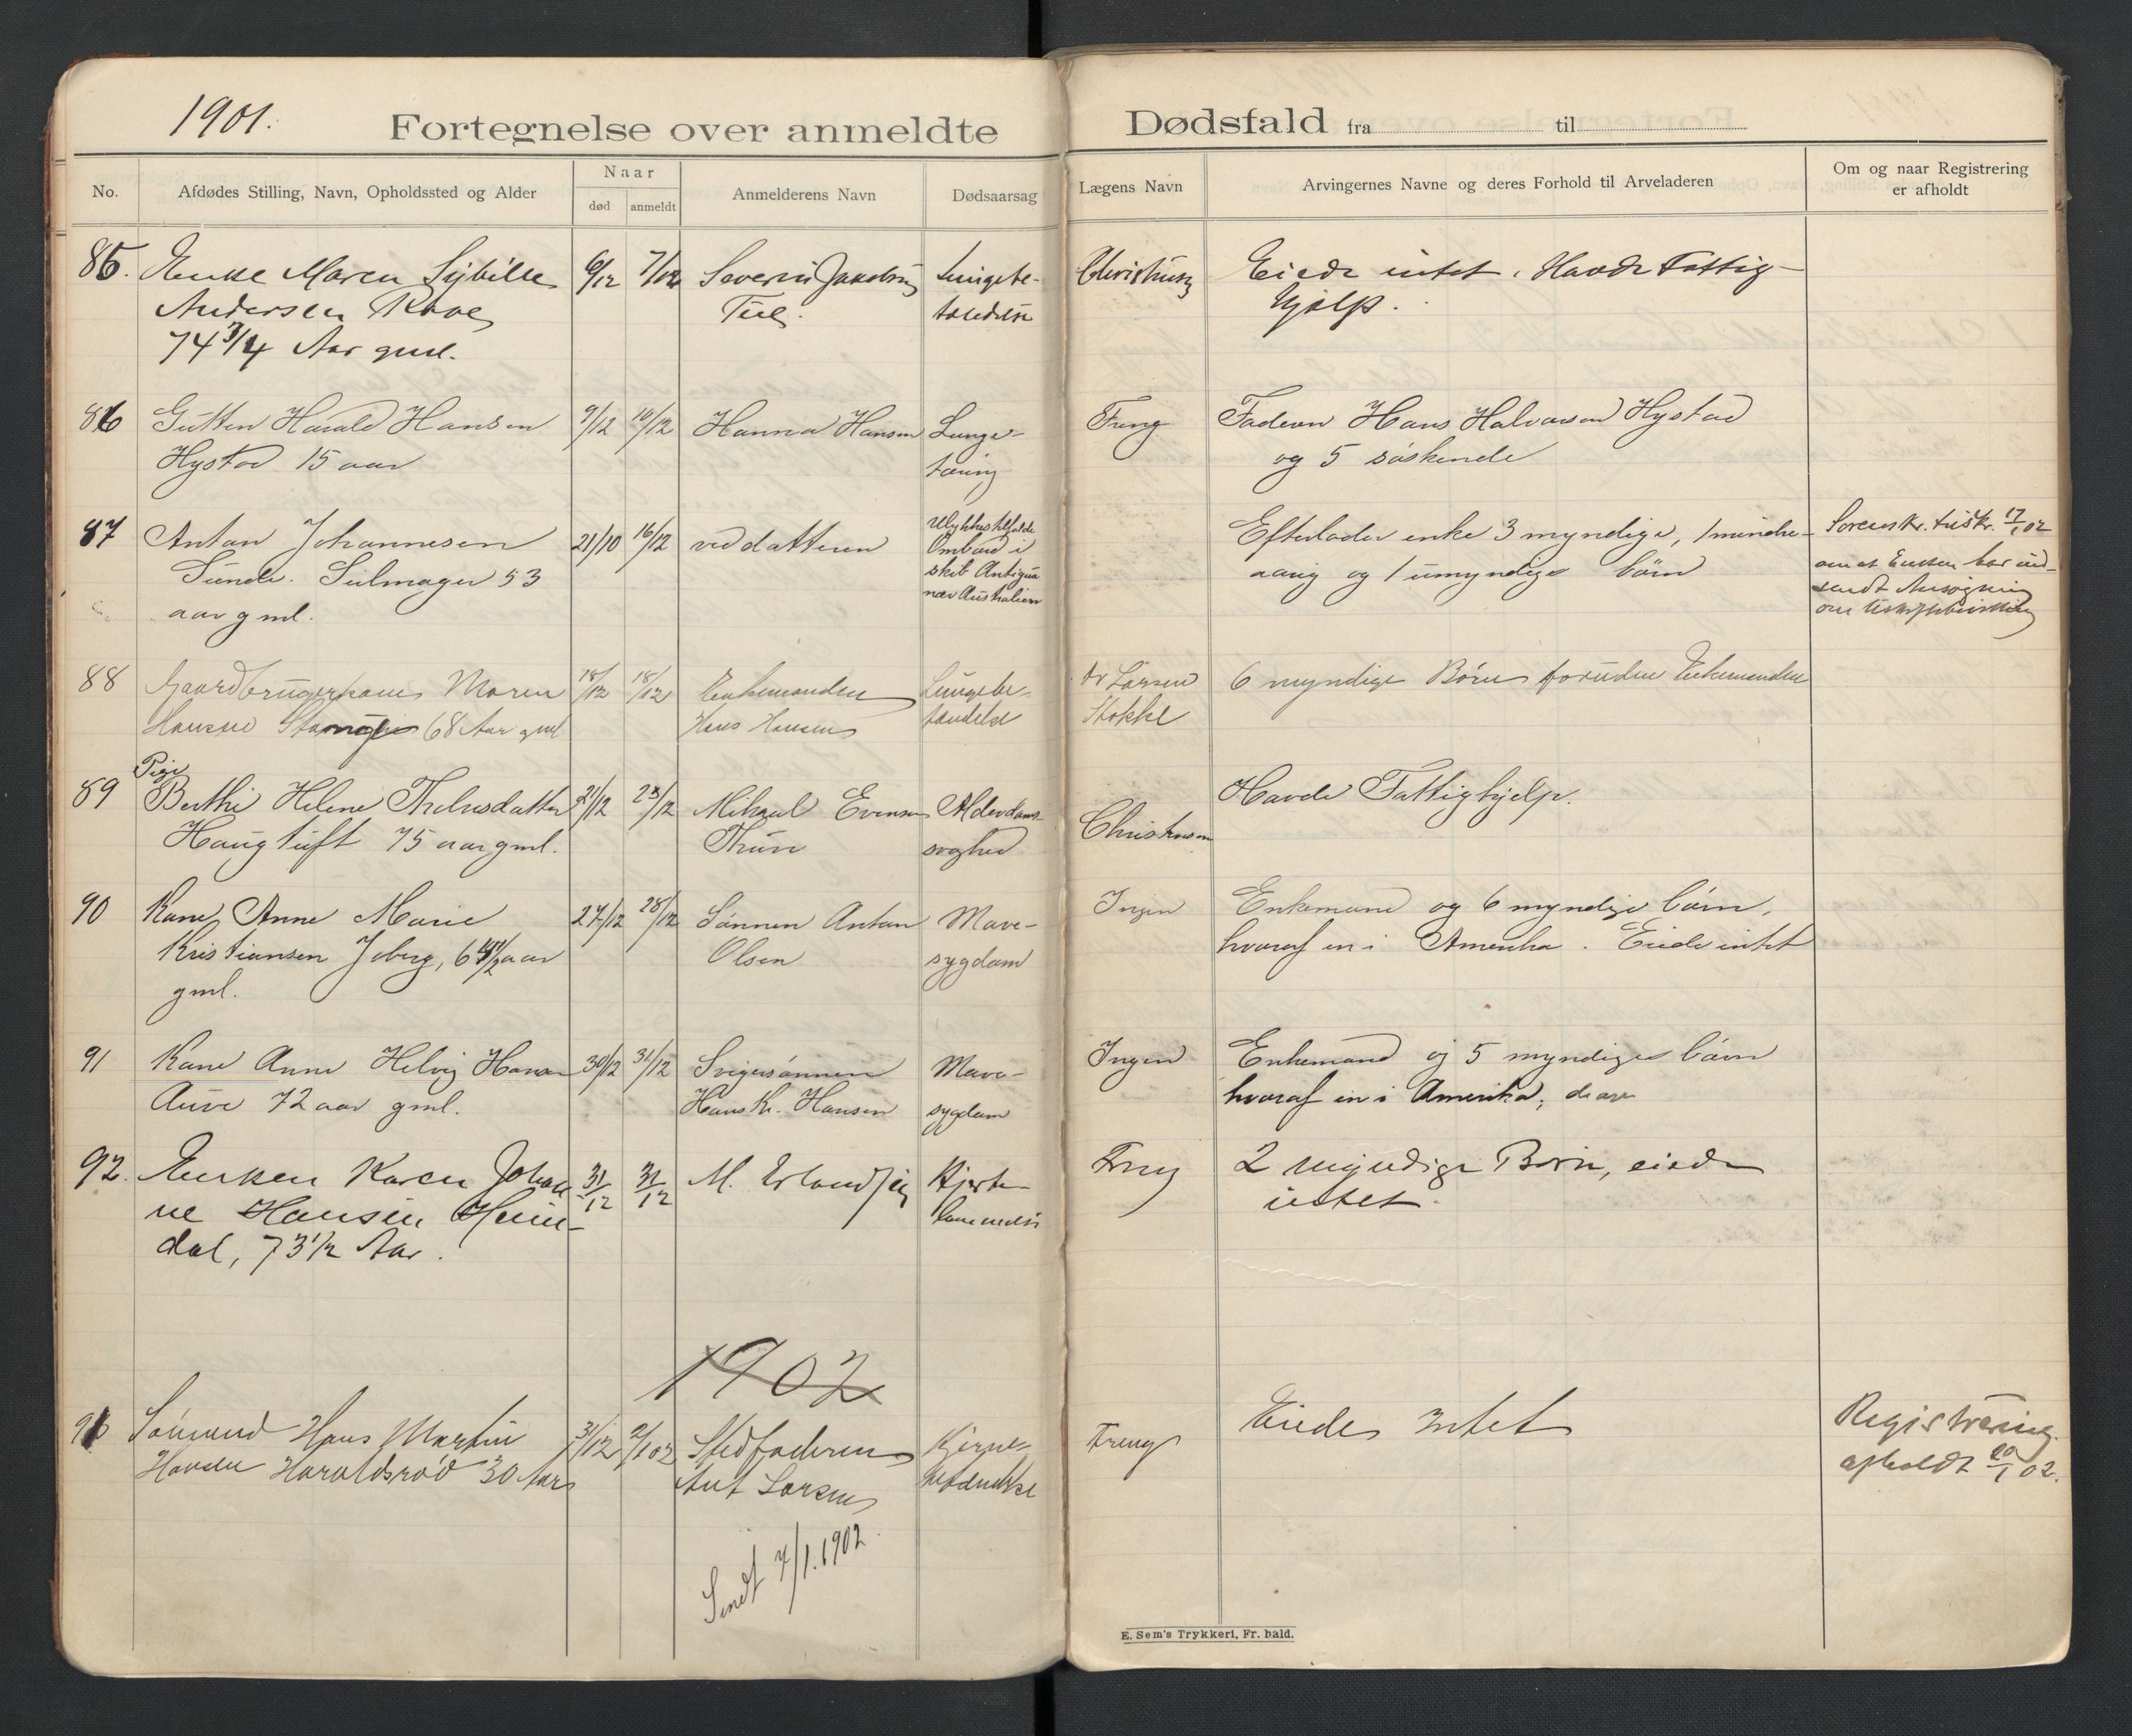 1901.
Fortegnelse over anmeldte Dødsfald fra til
No.
Afdødes Stilling, Navn, Opholdssted og Alder
Naar
død
anmeldt
Anmelderens Navn
Dødsaarsag
Lægens Navn
Arvingernes Navne og deres Forhold til Arveladeren
Om og naar Registrering
er afholdt
85. Enke Maren Sybille 6/12 7/12 Severin Jakobsen Lungebe- Christensen Eiede intet. Havde Fattig-
Andersen tændelse hjelp.
74 3/4 Aar gml.
86 Gutten Harald Hansen 9/12 10/12 Hanna Hansen Lunge- Freng Faderen Hans Halvorsen Hystad
Hystad 15 aar tæring og 5 søskende
87 Anton Johannesen 21/10 16/12 ved datteren Ulykkestilfælde Efterlader enke 3 myndige, 1 mindre- Sorenskr. tilskr. 17/1 02
Sunde. Seilmager 53 Ombord i aarig og 1 umyndige børn om at Enken har ind-
aar gml. skib Antigua sendt Ansøgning
nær Australien om
88 Gaardbrugerkone Maren 18/12 18/12 Enkemanden Lungebe- Dr Larsen 6 myndige Børn foruden Enkemanden
Hansen 68 Aar gml Hans Hansen tændelse Stokke
Pige
89 Berthe Helene 21/12 23/12 Mikael Evensen Alderdoms- Christensen Havde Fattighjelp.
Haugtuft 75 aar gml. Thure svaghed
90 Kone Anne Marie 27/12 28/12 Sønnen Anton Mave- Ingen Enkemand og 6 myndige børn,
Kristiansen Joberg, 64 1/2 aar Olsen sygdom hvoraf en i Amerika. Eiede intet
gml.
91 Kone Anne Helvig Hansen 30/12 31/12 Svigersønnen Mave- Ingen Enkemand og 5 myndige børn
Auve 72 aar gml. Hans Kr. Hansen sygdom hvoraf en i Amerika,
92. Enken Karen Johan 31/12 31/12 M. Erlandsen Hjerte- Freng 2 myndige Børn, eiede
ne Hansen Heim- lammelse intet.
dal, 73 1/2 Aar.
1902
93 Sømand Hans Martin 31/12 2/1 02 Stedfaderen Freng Eiede Intet Registrering
Hansen Haraldsrød 30 Aar Ant Larsen afholdt 20/1 02.
Sendt 7/1. 1902
E. Sem's Trykkeri, Fr. hald.